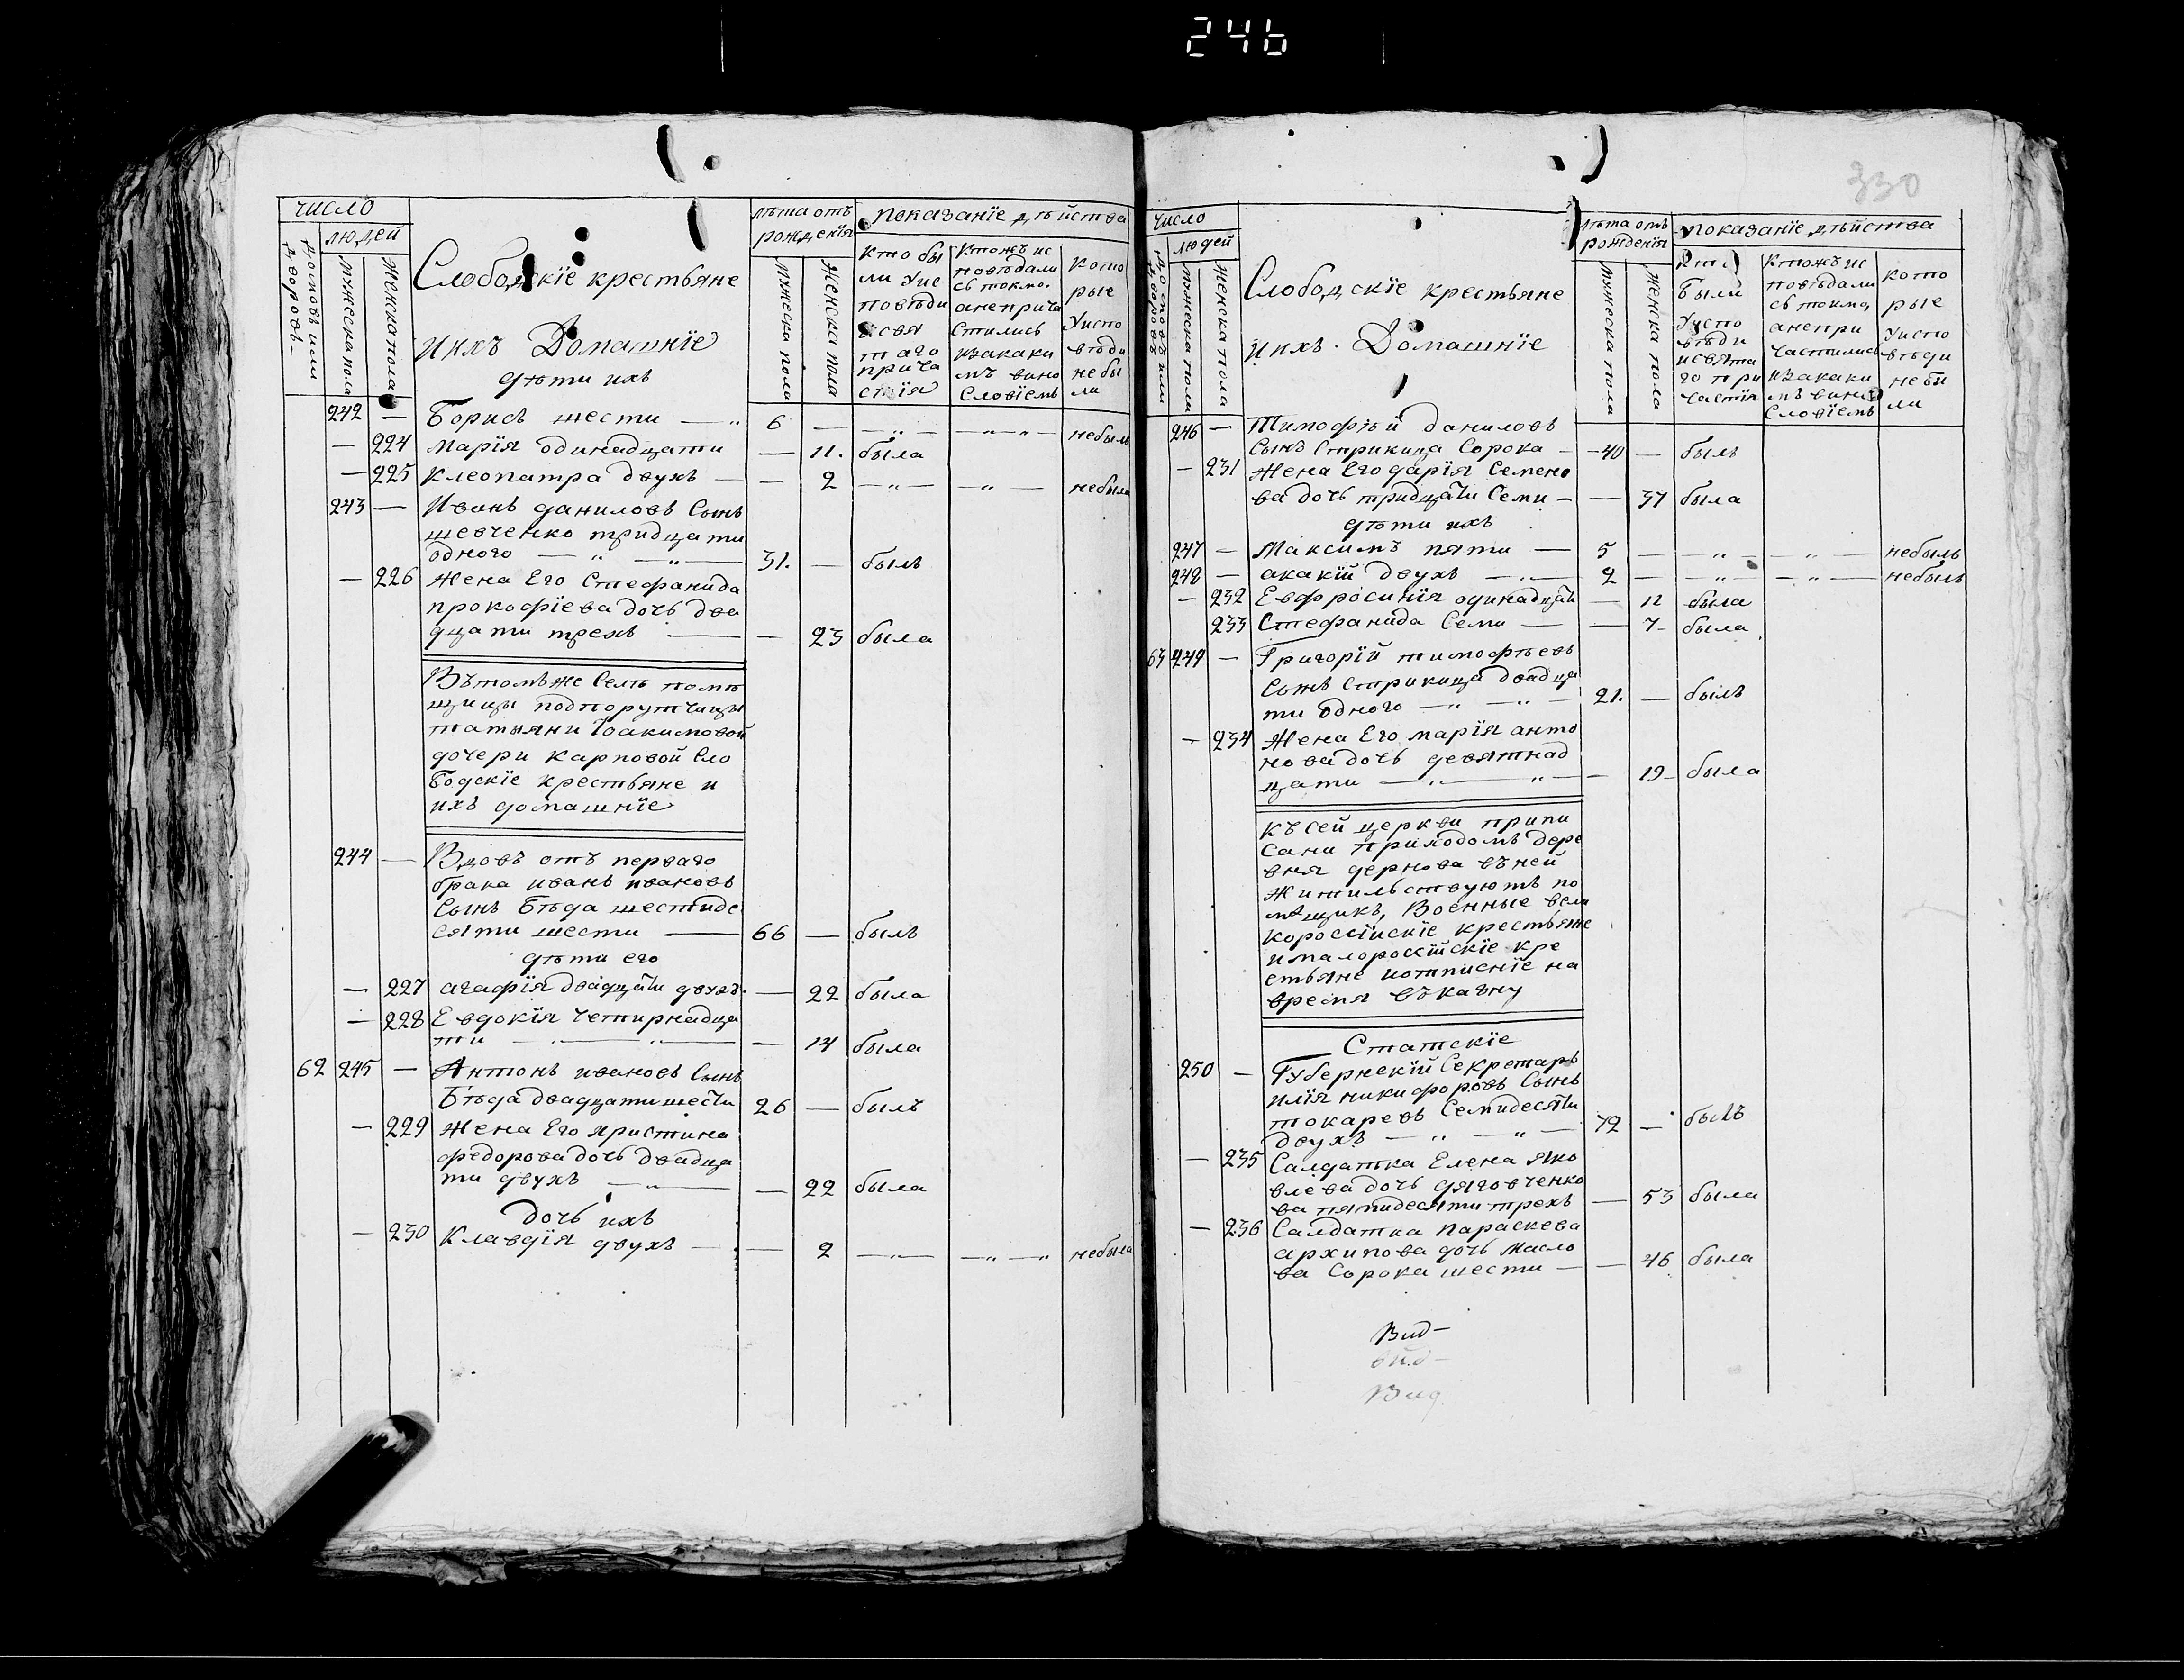 246
число
людей
домовъ или дворовъ
мужеска пола
женска пола
Слободскіе крестьяне
ихъ Домашніе
дѣти ихъ
лѣта отъ
рожденія
мужеска пола
женска пола
показаніе дѣйства
кто бы
ли уис
повѣди
исвя
таго
прича
стія
Ктожъ ис
повѣдали
сь токмо,
анепричи
стились
изакаки
мъ вино
словіемъ
кото
рые
уиспо
вѣди
небы
ли
242 — Борисъ шести — 6 — — — небылъ
— 224 Марія одинадцати — 11. была
— 225 Клеопатра двухъ — — 2 — — небыла
243 — Иванъ даниловъ Сынъ
шевченко тридцати
одного — 31. — былъ
— 226 Жена Его Стефанида
прокофіева дочь два
дцати трехъ — — 23 была
Въ томъже Селѣ помѣ
щицы подпорутчицы
татыяни Іоакимовой
дочери Карповой Сло
бодскіе крестьяне и
ихъ домашніе
244 — Вдовъ отъ перваго
брака иванъ ивановъ
Сынъ Бѣда шестиде
сяти шести — 66 — былъ
дѣти его
— 227 агафія двадцати двухъ — 22 была
— 228 Евдокія четирнадца
ти — — 14 была
62 245 — Антонъ ивановъ Сынъ
Бѣда двадцатишести 26 — былъ
— 229 Жена Его христина
федорова дочь двадца
ти двухъ — — 22 была
дочь ихъ
— 230 Клавдія двухъ — — 2 — — небыла
330
число
людей
домовъ или дворовъ
мужеска пола
женска пола
Слободскіе крестьяне
ихъ Домашніе
лѣта отъ
рожденія
мужеска пола
женска пола
показаніе дѣйства
Были
уиспо
вѣди
исвята
го при
частія
Ктожъ ис
повѣдали
сь токмо,
анепри
частились
изакаки
мъ вино
словіемъ
кото
рые
уиспо
вѣди
небы
ли
246 — Тимофѣй даниловъ
Сынъ Стрикица Сорока — 40 — былъ
— 231 Жена Его дарія Семено
ва дочь тридцати Семи — — 37 была
дѣти ихъ
247 — Максимъ пяти — 5 — — — небылъ
248 — акакій двухъ — 2 — — — небылъ
— 232 Евфросинія одинадцати — 11 была
233 Стефанида Семи — — 7 была
63 249 — Григорій тимофѣевъ
Сынъ Стрикица двадца
ти одного — 21. — былъ
— 234 Жена Его марія анто
нова дочь девятнад
цати — — 19 была
къ сей церкви припи
сани приходомъ дере
вня дернова въ ней
жительствуютъ по
мѣщикъ, Военные вели
короссійскіе крестьяне
ималороссійскіе кре
стьяне иотписніе на
время въ казну
Статскіе
250 — Губернскій Секретарь
илія никифоровъ Сынъ
токаревъ Семидесяти
двухъ — 72 — былъ
— 235 Салдатка Елена яко
влева дочь дяговченко
ва пятидесяти трехъ — 53 была
— 236 Салдатка параскева
архипова дочь масло
ва Сорока шести — — 46 была
Вид—
вид—
Вид